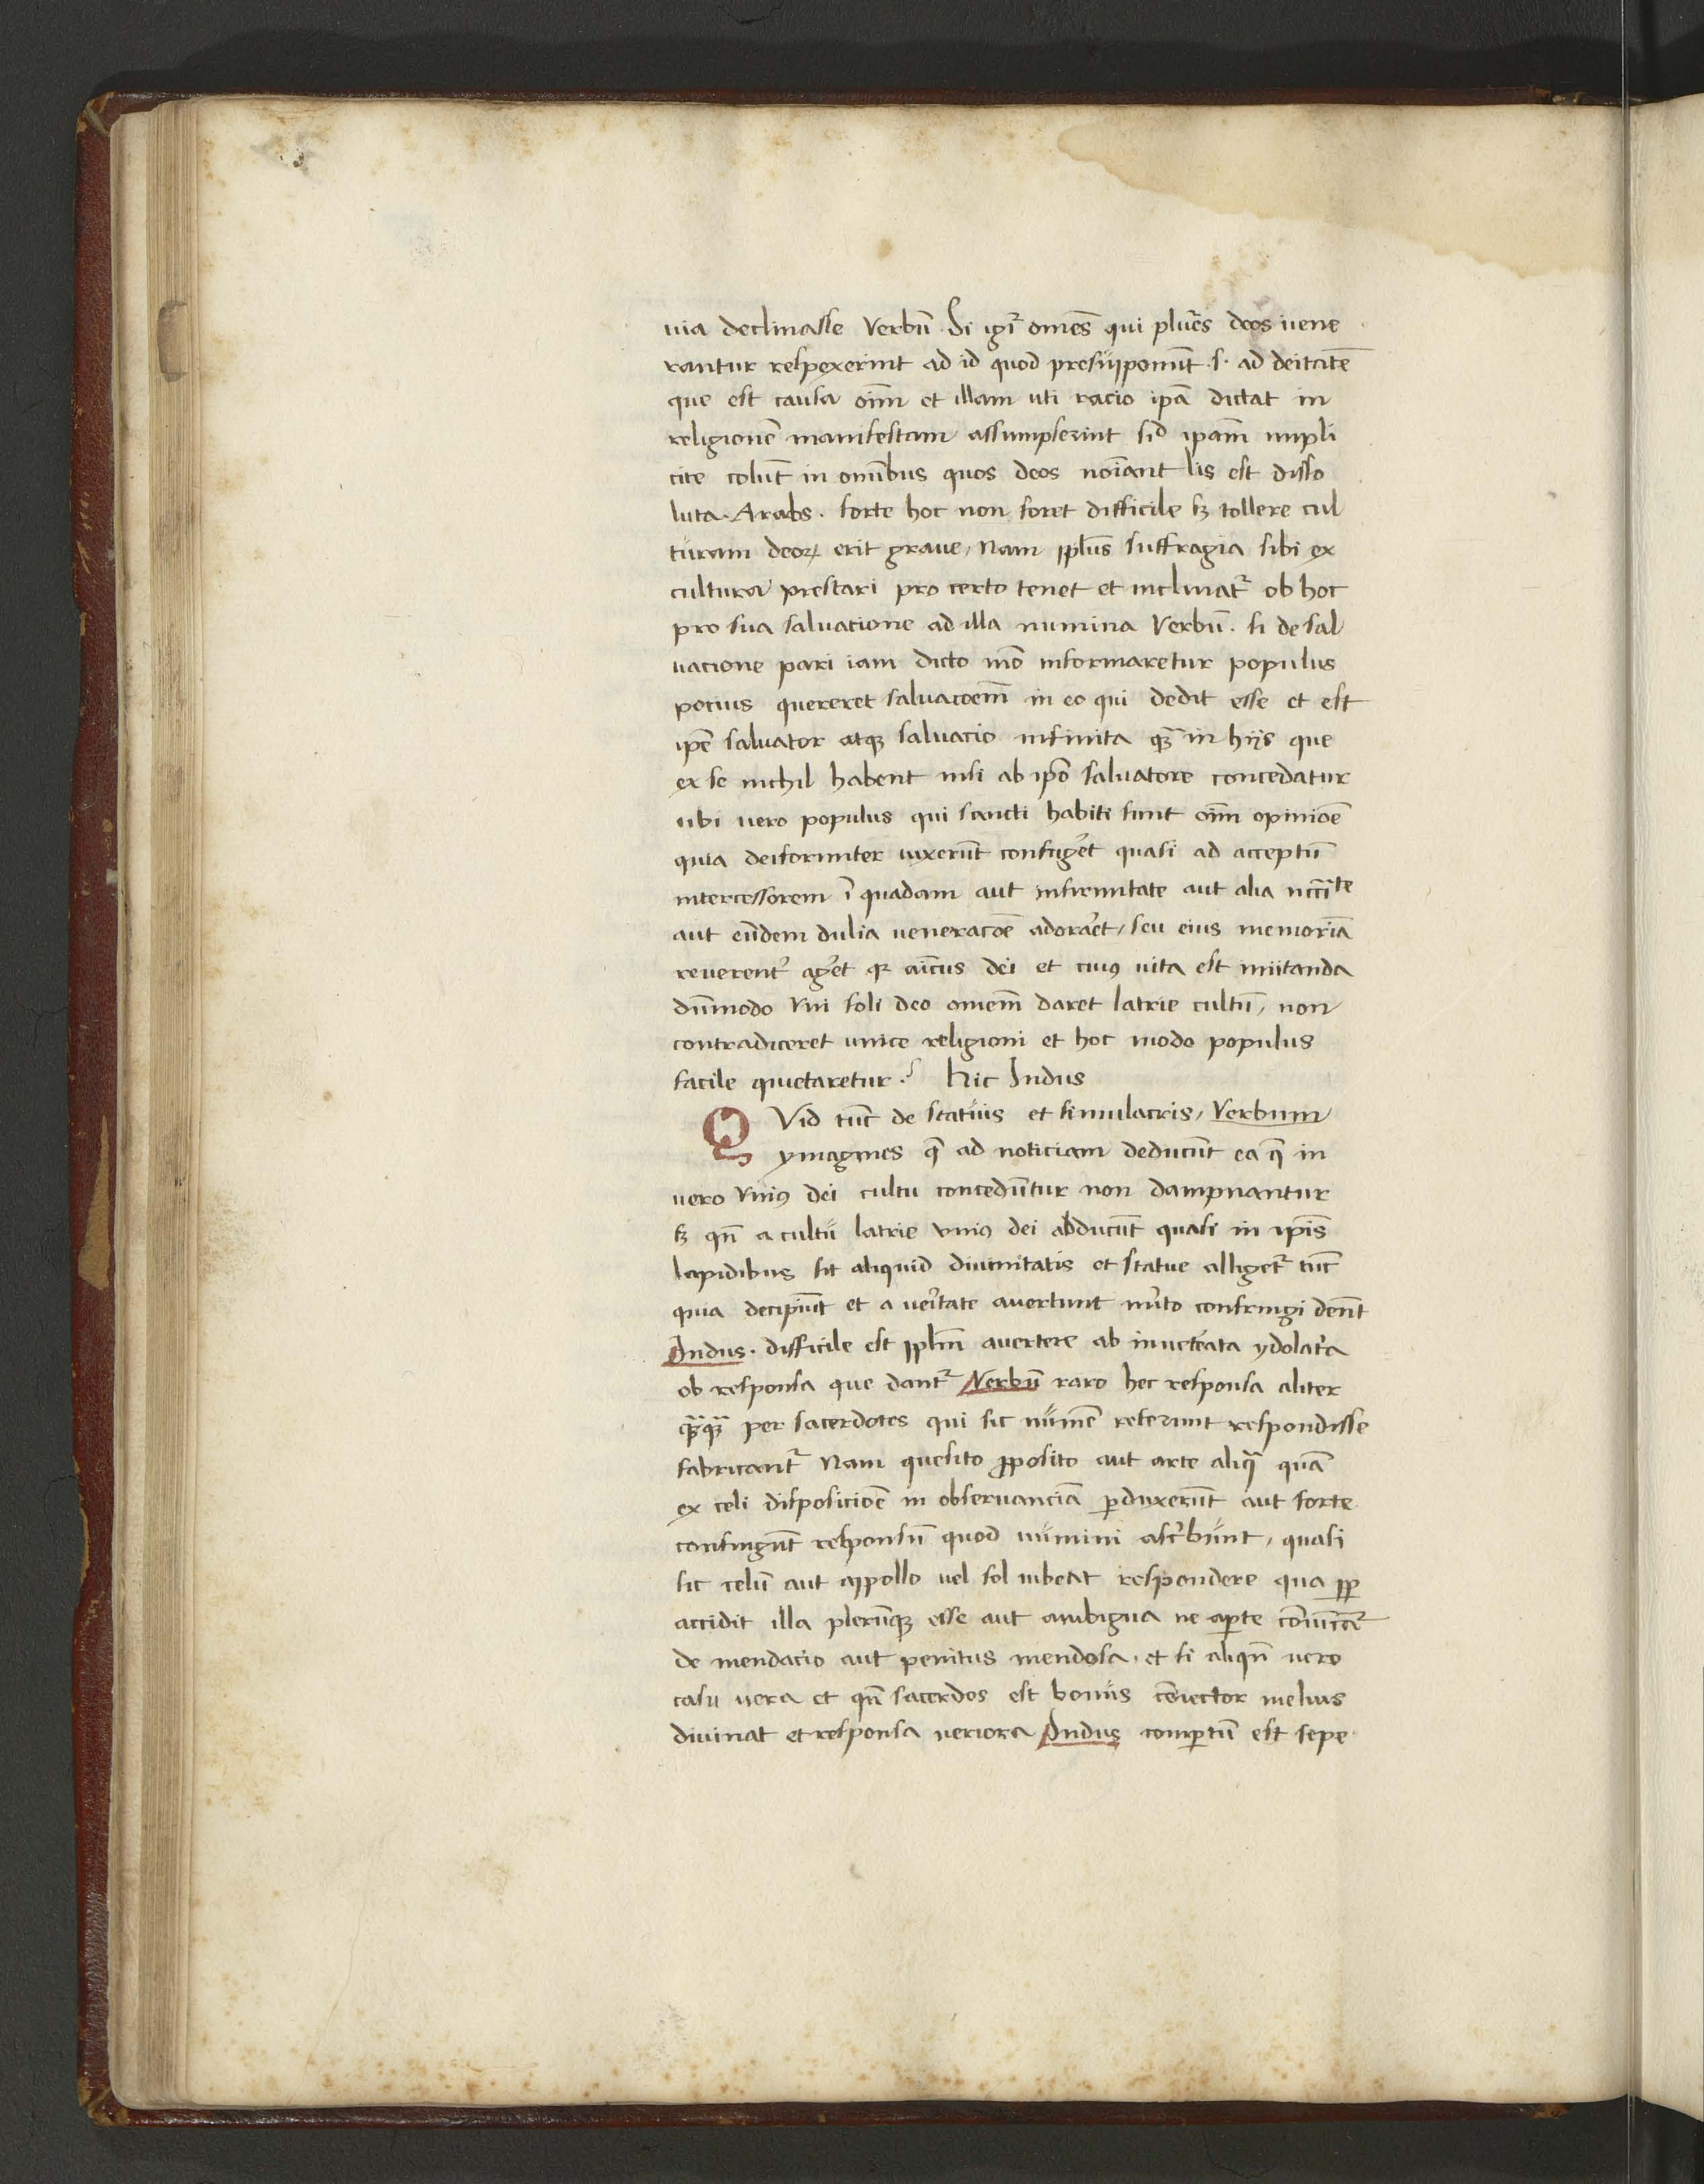 uia declinasse Verbū. Si igit᷑ omēs qui plures deos vene
rantur respexerint ad id quod presupponūt .s. ad deitatē
que est causa oīm et illam uti racio ipā dictat in
religionē manifestam assumpserint sic̄ ipam̄ impli
cite colūt in omībus quos deos noīant lis est disso
luta. Arabs. forte hoc non foret difficile sꝫ tollere cul
turam deoꝝ erit graue, Nam ppl̄us suffragia sibi ex
cultura prestari pro certo tenet et inclinat᷑ ob hoc
pro sua saluacione ad illa numina Verbū. si de sal
uacione pari iam dicto mō informaretur populus
pocius quereret saluacoem̄ in eo qui dedit esse et est
ipē saluator atqꝫ saluacio infinita qꝫ̄ in hijs que
ex se nichil habent nisi ab ipō saluatore concedatur
ubi vero populus qui sancti habiti sunt oīm opinioē
quia deiformiter vixerūt confug̉et quasi ad acceptū
intercessorem ī quadam aut infirmitate aut alia nccīte
aut eūdem dulia veneracoē adoraret, seu eius memoriā
reverent᷑ ag̉et qꝛ aīcus dei et cuiꝰ vita est imitanda
dūmodo vni soli deo omem̄ daret latrie cultū, non
contradiceret unice religioni et hoc modo populus
facile quietaretur. Hic Indus
QVid tūc de statuis et simulacris, Verbum
ymagines q̄ ad noticiam deducūt ea q̄ in
vero vniꝰ dei cultu concedūtur non dampnantur
sꝫ qn̄ a cultu latrie vniꝰ dei abducūt quasi in ipīs
lapidibus sit aliquid divinitatis et statue alliget᷑ tūc
quia decipiūt et a veritate avertunt mꝰito confringi debēt
Indus. difficile est ppl̄m avertere ab inveterata ydolatria
ob responsa que dant᷑ Verbū raro hec responsa aliter
quāqꝫ̄ per sacerdotes qui sic numē referunt respondisse
fabricant᷑ Nam quesito p̄posito aut arte aliq̄ quā
ex celi disposicioē in observanciā ꝑduxerūt aut sorte
confingūt responsū quod numini ascribunt, quasi
sic celū aut appollo vel sol iubeat respondere qua ꝓp̄
accidit illa plerūqꝫ esse aut ambigua ne aꝑte convīcat᷑
de mendacio aut penitus mendosa, et si aliqn̄ vero
casu vera et qn̄ sacerdos est bonus cōiector melius
divinat et responsa veriora Indus comꝑtū est sepe